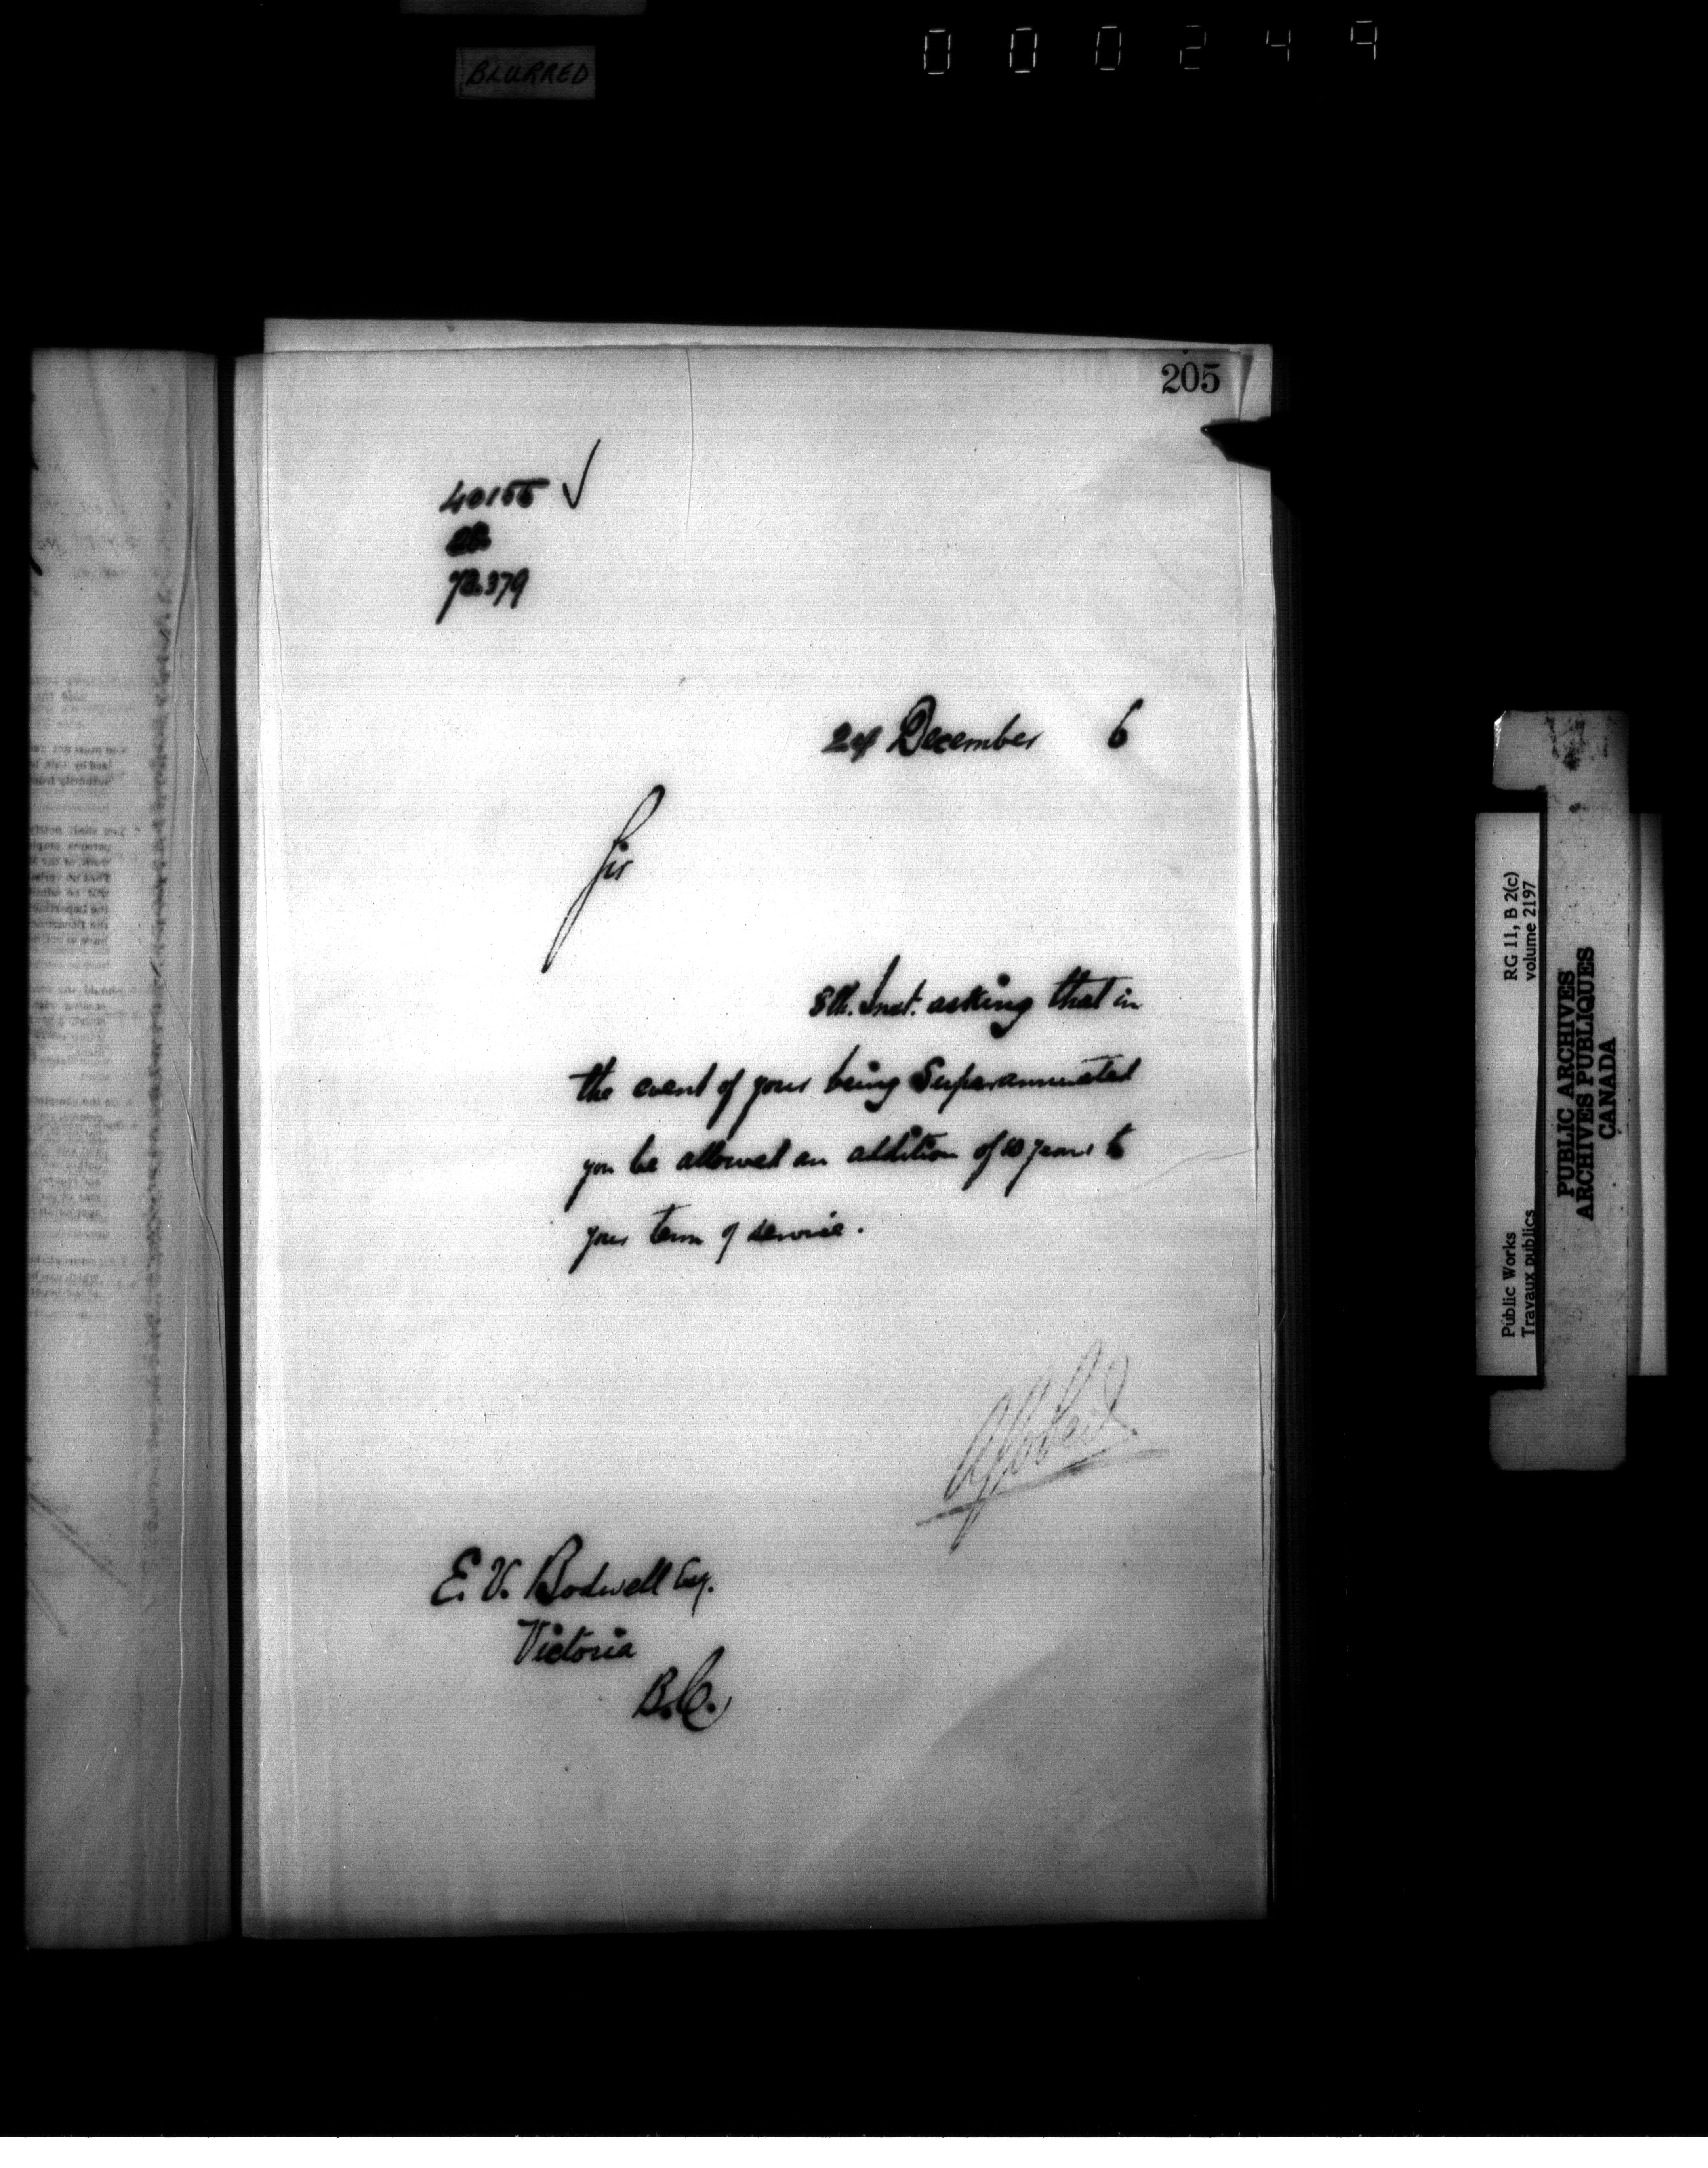 BLURRED
000249
205
40155 ✓
72.379
24 December 6
Sir
8th. Inst. asking that in
the event of your being Superannuated
you be allowed an addition of 10 years to
your term of service.
E. V. Bodwell Esq.
Victoria
B.C.
Public Works
Travaux publics
RG 11, B 2(c)
volume 2197
PUBLIC ARCHIVES
ARCHIVES PUBLIQUES
CANADA